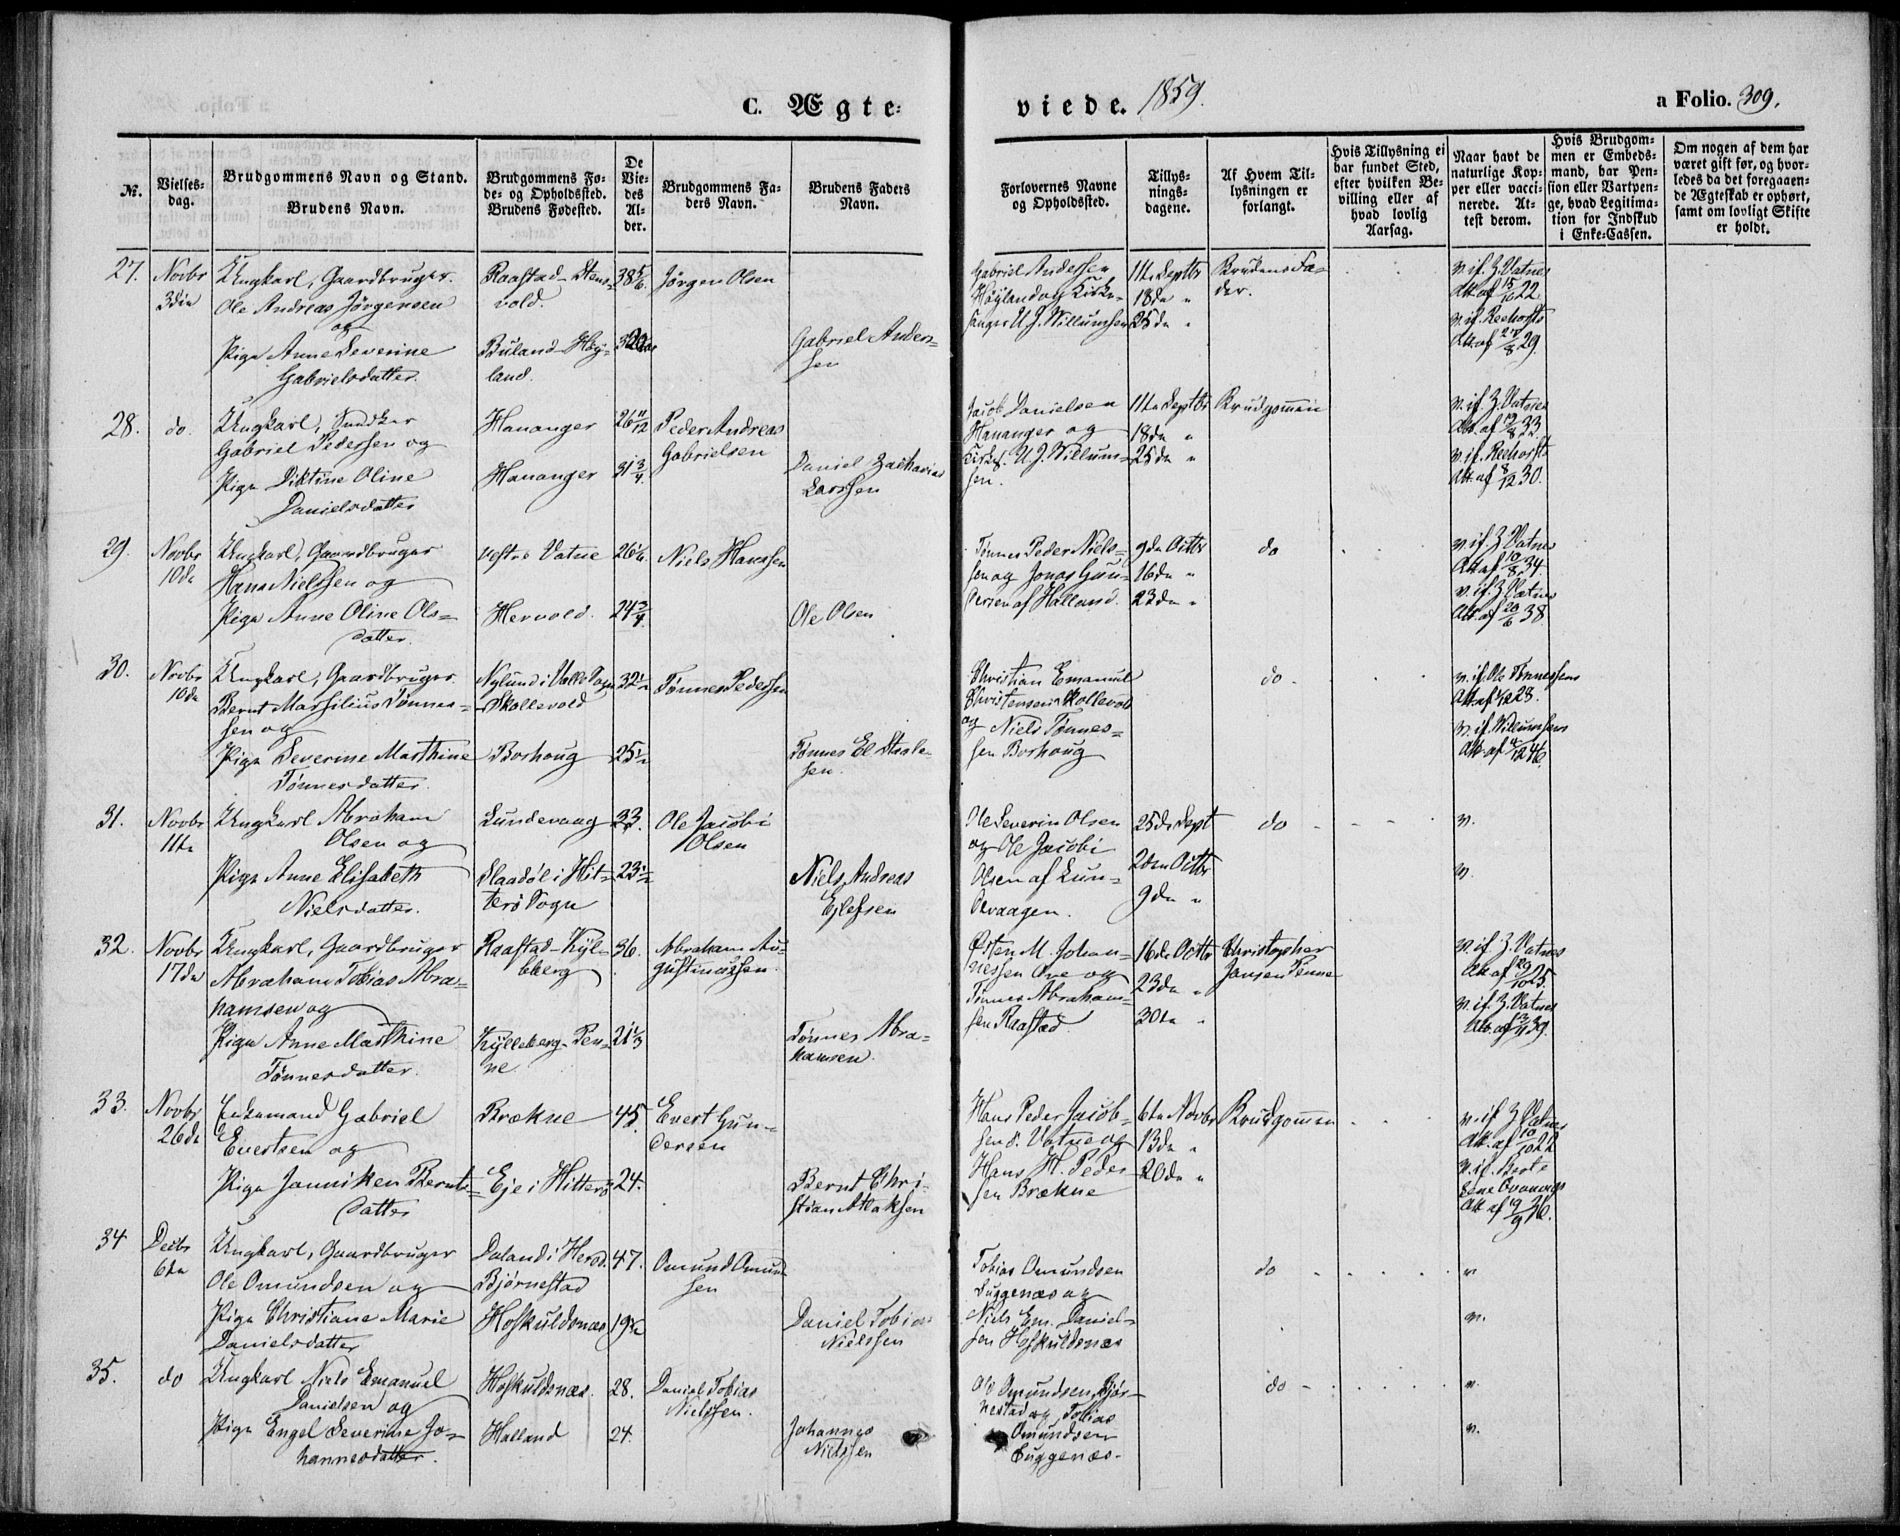 C. Ægte-
viede. 1859.
a Folio. 309.
No.
Vielses-
dag.
Brudgommens Navn og Stand.
Brudens Navn.
Brudgommens Fø-
de- og Opholdssted.
Brudens Fødested.
De
Vie-
des
Al-
der.
Brudgommens Fa-
ders Navn.
Brudens Faders
Navn.
Forlovernes Navne
og Opholdssted.
Tillys-
nings-
dagene.
Af Hvem Til-
lysningen er
forlangt.
Hvis Tillysning ei
har fundet Sted,
efter hvilken Be-
villing eller af
hvad lovlig
Aarsag.
Naar havt de
naturlige Kop-
per eller vacci-
nerede. At-
test derom.
Hvis Brudgom-
men er Embeds-
mand, har Pen-
sion eller Vartpen-
ge, hvad Legitima-
tion for Indskud
i Enke-Cassen.
Om nogen af dem har
været gift før, og hvor-
ledes da det foregaaen-
de Ægteskab er ophørt,
samt om lovligt Skifte
er holdt.
27.
Novbr
3die
Ungkarl, Gaardbruger
Ole Andreas Jörgensen
og
Pige Anne Severine
Gabrielsdatter.
Raastad - Stens-
vold.
Buland - Høy-
land.
38 5/6.
Jörgen Olsen
Gabriel Ander-
sen
Gabriel Andersen
Høyland og Kirke-
sanger U J. Willumsen
11te Septbr
18de "
25de "
Brudens Fa-
der.
v. if. Z. Vatnes
Att. af 15/10 22
v. if. Reehorsts
Att. af 27/8 29.
28.
do.
Ungkarl, Snedker
Gabriel Pedersen og
Pige Diktine Oline
Danielsdatter
Hananger
Hananger
26 11/12
31 3/4
Peder Andreas
Gabrielsen
Daniel Zacharias
Larssen
Jacob Danielsen
Hananger og
Kirkes. U J. Willum-
sen.
11te Septbr
18de "
25de "
Brudgommen
v. if. Z. Vatnes
Att. af 19/8 33
v. if. Reehorsts
Att. af 8/12 30.
29.
Novbr
10de
Ungkarl, Gaardbruger
Hans Nielssen og
Pige Anne Oline Ols-
datter.
vestre Vatne
Hervold.
26 1/6
24 3/4
Niels Hanssen
Ole Olsen
Tønnes Peder Niels-
sen og Jonas Gun-
dersen af Halland.
9de Octbr
16de "
23de "
do
v. if. Z. Vatnes
Att. af 10/8 34
v. if. Z. Vatnes
Att. af 20/6 38
30.
Novbr
10de
Ungkarl, Gaardbruger
Bernt Massilius Tønnes-
sen og
Pige Severine Marthine
Tønnesdatter.
Nylund i Valle Sogn
Skollevold
Borhoug
32 1/2
25 1/2
Tønnes Pedersen
Tønnes El Staale-
sen.
Christian Emanuel
Christensen Skollevold
og Niels Tønnes-
sen Borhoug
do -
v. if. Ole Tønnessens
v. if. Willumsens
31.
Novbr
11te
Ungkarl Abraham
Olsen og
Pige Anne Elisabeth
Nielsdatter.
Lundevaag
Slaadøl i Hit-
terö Sogn
33.
23 1/2
Ole Jacobi
Olsen
Niels Andreas
Ejlefsen
Ole Severin Olsen
og Ole Jacobi
Olsen af Lun-
devaagen.
25de Sept
2den Octbr
9de "
do
v.
v.
32.
Novbr
17de
Ungkarl, Gaardbruger
Abraham Tobias Abra-
hamsen og
Pige Anne Marthine
Tønnesdatter.
Raastad - Kyl-
leberg
Kylleberg - Pen-
ne
36.
21 1/3
Abraham Au-
gustinussen.
Tønnes Abra-
hamsen.
Østen M. Johan-
nessen Ore og
Tønnes Abraham-
sen Raastad.
16de Octbr
23de "
30te "
Christopher
Jansen Penne
v. if. Z. Vatnes
Att. af 29/10 25.
v. if. Z. Vatnes
33.
Novbr
26de
Enkemand Gabriel
Evertsen og
Pige Janniken Bernts-
datter
Brækne
Eje i Hitterö
45.
24.
Evert Gun-
dersen
Bernt Chri-
stian Alaksen
Hans Peder Jacob-
sen S. Vatne og
Hans H. Peder
sen Brækne
6te Novbr
13de "
20de "
Brudgommen
v. if. Z. Vatnes
Att. af 10/10 22
34
Decbr
6te
Ungkarl, Gaardbruger
Ole Omundsen og
Pige Christiane Marie
Danielsdatter
Daland i Herod.
Bjørnestad
Hoskuldsnæs
47.
19 1/2
Omund Omund
sen
Daniel Tobias
Nielssen
Tobias Omundsen
Luggenæs og
Niels Em. Daniel-
sen Hoskuldsnæs
do
v
v.
35.
do
Ungkarl Niels Emanuel
Danielsen og
Pige Engel Severine Jo-
hannesdatter.
Hoskuldsnæs.
Halland
28.
24.
Daniel Tobias
Nielssen.
Johannes
Nielssen
Ole Omundsen, Bjør-
nestad og Tobias
Omundsen
Luggenæs.
do
v.
v.